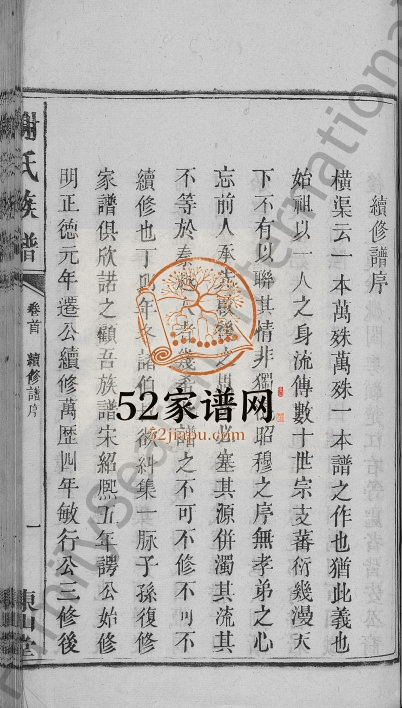 續修譜序
橫渠云一本萬殊萬殊一本譜之作也猶此義也
始祖以一人之身流傳數十世宗支蕃衍幾漫天
下不有以聯其情非獨昭穆之序無孝弟之心
忘前人承先啟後之 必塞其源併濁其流其
不等於秦越人者幾希譜之不可不修不可不
續修也丁 年冬諸伯 後糾集一脉子孫復修
家譜俱欣諾之顧吾族譜宋紹熙五年諤公始修
明正德元年遷公續修萬歷四年敏行公三修後
謝氏族譜
卷首
續修譜序
一
東山堂
52家谱网
52jiapu.com
FamilySearch International